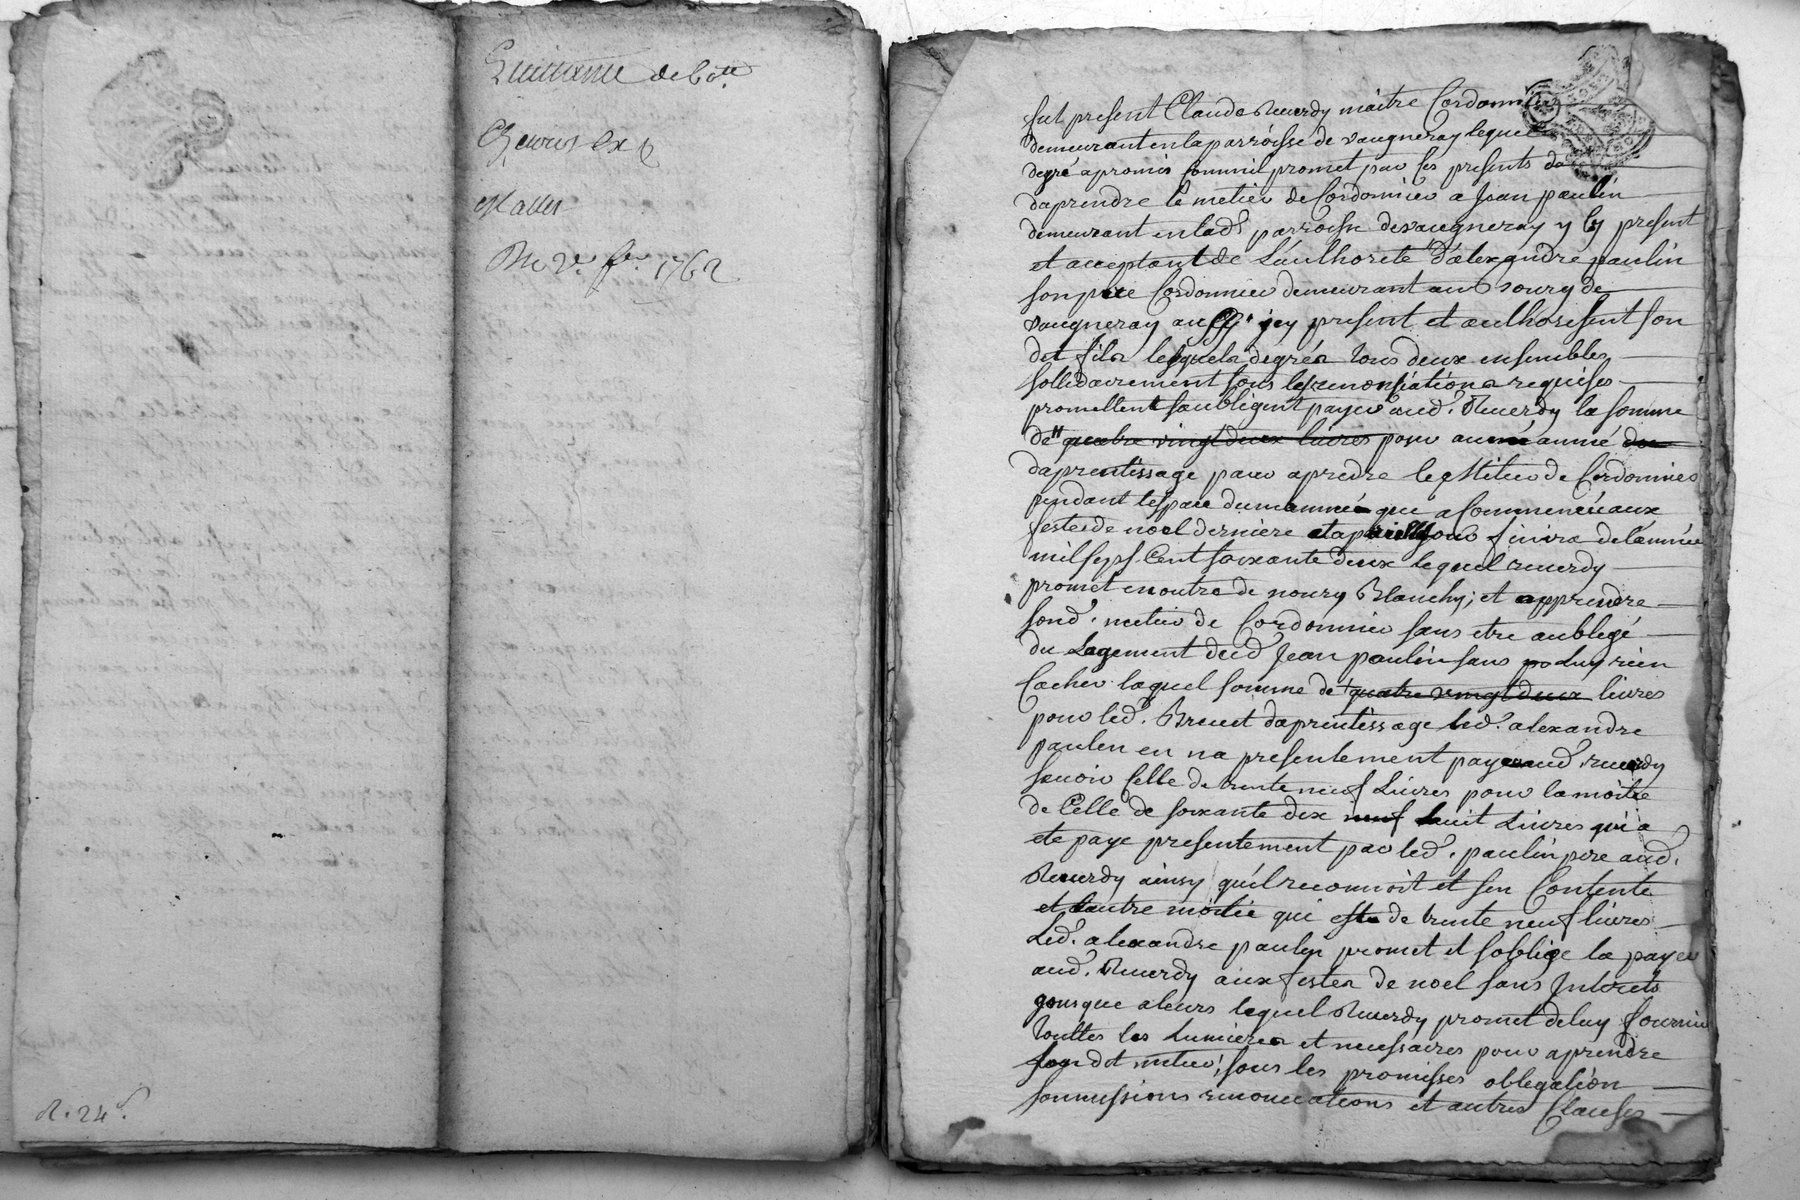 Quittance de 60ᵗᵗ
1762
R. 24ˢ.
fut present Claude Ruerdy maitre Cordonnier
demeurant en la parroisse de vaugneray lequel
degré a promis comme il promet par ses presents de
daprendre le metier de Cordonnier a Jean paulin
demeurant en lad. parroisse de vaugneray y cy present
et acceptant de Lauthorité d'alexandre paulin
son pere Cordonnier demeurant au bourg de
vaugneray aussy jcy present et authorisent son
dit fils lesquels degrés tous deux ensembles
sollidairement sous les renonsiations requises
promettent saubligent payer aud. Ruerdy la somme
de quatre vingt deux livres pour anné
daprentissage pour apredre le Mitier de Cordonnier
pendant lespace dunanneé que a Commencé aux
festes de noel derniere et a pareil jour finira de lannée
mil sept Cent soixante deux lequel ruerdy
promet en outre de noury Blanchy; et apprendre
sond. metier de Cordonnier sans etre aublegé
du Lagement dud. Jean paulin sans luy rien
Cacher laquel somme de quatre vingt deux livres
pour led. Brevet daprentissage led. alexandre
paulin en na presentement payé aud. ruerdy
scavoir Celle de trente neuf Livres pour la moitié
de Celle de soixante dix neuf huit Livres qui a
ete paye presentement par led. paulin pere aud.
Ruerdy ainsy quil reconnoit et sen Contente
et lautre moitié qui este de trente neuf livres
Led. alexandre paulin promet et soblige la payer
aud. Ruerdy aux festes de noel sans Interets
jousque aleurs lequel Ruerdy promet de luy fournir
touttes les Lumieres et necessaires pour aprendre
son dit metier, sous les promisses oblegation
soumissions renonciations et autres Clauses